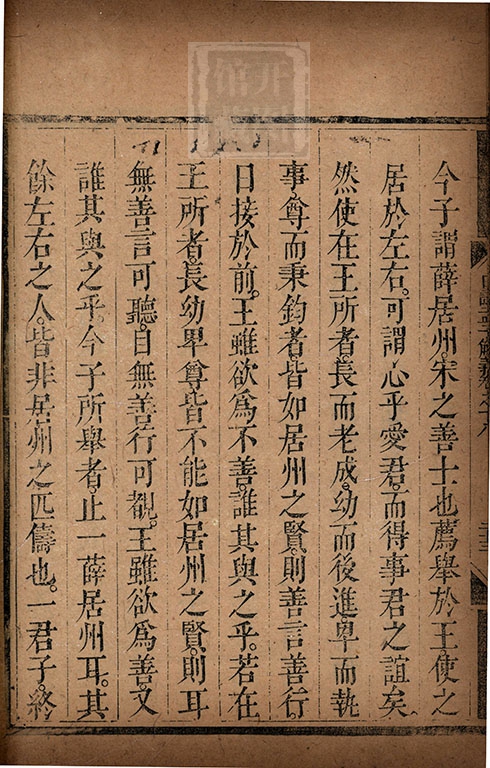 今子謂薛居州。宋之善士也薦舉於王。使之
居於左右。可謂心乎愛君。而得事君之誼矣
然使在王所者。長而老成。幼而後進卑而執
事。尊而秉鈞者皆如居州之賢。則善言善行。
日接於前。王雖欲爲不善。誰其與之乎。若在
王所者。長幼卑尊皆不能如居州之賢。則耳
無善言可聽。目無善行可觀。王雖欲爲善又
誰其與之乎。今子所舉者。止一薛居州耳。其
餘左右之人。皆非居州之匹儔也。一君子。終